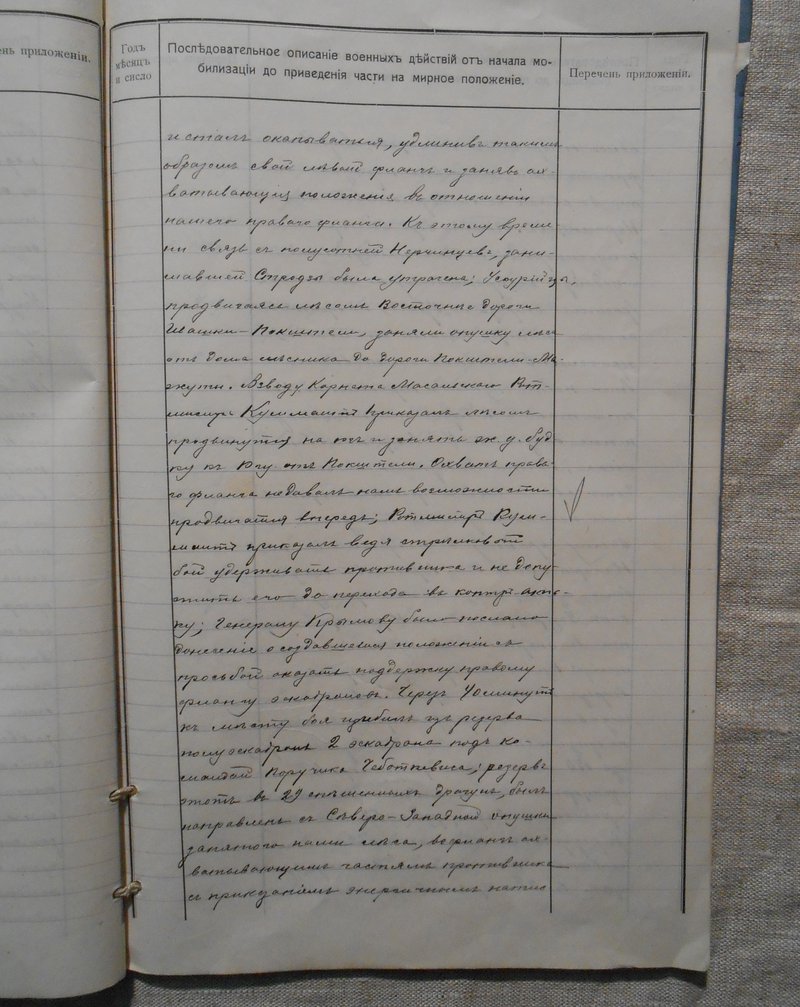 ень приложеній.
Годъ мѣсяцъ и число
Послѣдовательное описаніе военныхъ дѣйствій отъ начала мо-
билизаціи до приведенія части на мирное положеніе.
Перечень приложеній.
и сталъ окапываться, удлинивъ такимъ
образомъ свой лѣвый флангъ и занявъ ох-
ватывающія положенія въ отношеніи
нашего праваго фланга. Къ этому време-
ни связь съ полусотней Нерчинцевъ, зани-
мавшей Стредзы была утрачена; Уссурійцы,
продвигаясь лѣсомъ Восточнѣе дороги
Шашки-Покштели, заняли опушку лѣса
отъ дома лѣсника до дороги Покштели-Ма-
жуты. Взводу Корнета Масальскаго Рот-
мистръ приказалъ лѣсомъ
продвинуться на югъ и занять ж. д. буд-
ку къ Югу отъ Покштели. Охватъ право-
го фланга не давалъ намъ возможности
продвигаться впередъ; Ротмистръ
приказалъ ведя стрѣлковый
бой удерживать противника и не допу-
стить его до перехода въ контръ-ата-
ку; Генералу Крымову было послано
донесеніе о создавшемся положеніи съ
просьбой оказать поддержку правому
флангу эскадроновъ. Черезъ 40 минутъ
къ мѣсту боя прибылъ изъ резерва
полуэскадронъ 2 эскадрона подъ ко-
мандой Поручика; резервъ
этотъ въ 29 спѣшенныхъ драгунъ, былъ
направленъ съ Сѣверо-Западной опушки
занятого нами лѣса, во флангъ ох-
ватывающимъ частямъ противника
съ приказаніемъ энергичнымъ натис